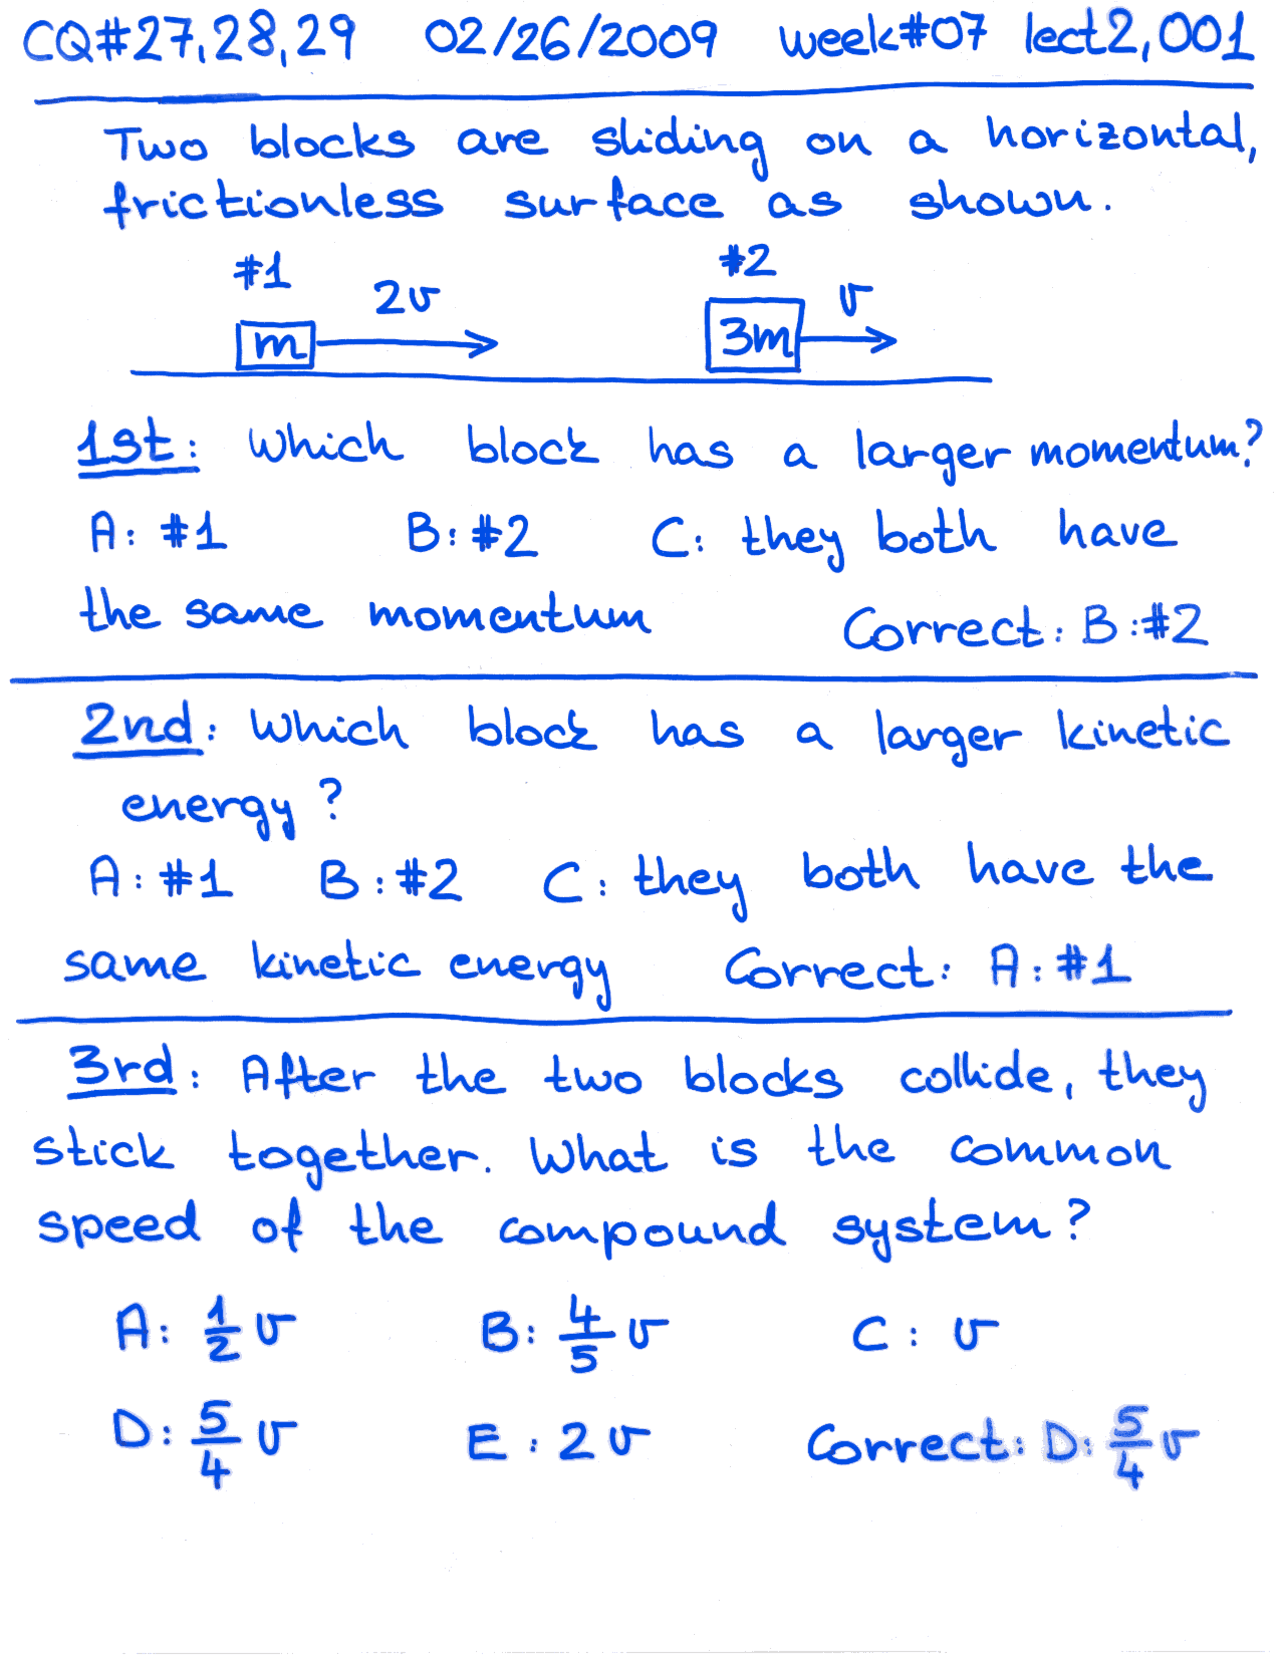 CQ#27,28,29 02/26/2009 week#07 lect2,001
Two blocks are sliding on a horizontal,
frictionless surface as shown.
#1 #2
2v v
m 3m
1st: Which block has a larger momentum?
A: #1 B: #2 C: they both have
the same momentum Correct: B: #2
2nd: Which block has a larger kinetic
energy?
A: #1 B: #2 C: they both have the
same kinetic energy Correct: A: #1
3rd: After the two blocks collide, they
stick together. What is the common
speed of the compound system?
A: 1/2 v B: 4/5 v C: v
D: 5/4 v E: 2v Correct: D: 5/4 v